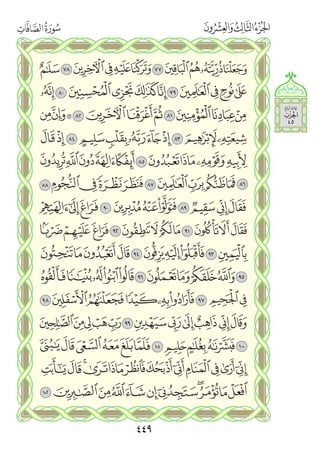 الجزء الثالث والعشرون سورة الصافات
وَجَعَلْنَا ذُرِّيَّتَهُۥ هُمُ ٱلْبَاقِينَ ٧٧ وَتَرَكْنَا عَلَيْهِ فِى ٱلْءَاخِرِينَ ٧٨ سَلَٰمٌ
عَلَىٰ نُوحٍ فِى ٱلْعَٰلَمِينَ ٧٩ إِنَّا كَذَٰلِكَ نَجْزِى ٱلْمُحْسِنِينَ ٨٠ إِنَّهُۥ
مِنْ عِبَادِنَا ٱلْمُؤْمِنِينَ ٨١ ثُمَّ أَغْرَقْنَا ٱلْءَاخَرِينَ ٨٢ ۞ وَإِنَّ مِن
شِيعَتِهِۦ لَإِبْرَٰهِيمَ ٨٣ إِذْ جَآءَ رَبَّهُۥ بِقَلْبٍ سَلِيمٍ ٨٤ إِذْ قَالَ
لِأَبِيهِ وَقَوْمِهِۦ مَاذَا تَعْبُدُونَ ٨٥ أَئِفْكًا ءَالِهَةً دُونَ ٱللَّهِ تُرِيدُونَ
٨٦ فَمَا ظَنُّكُم بِرَبِّ ٱلْعَٰلَمِينَ ٨٧ فَنَظَرَ نَظْرَةً فِى ٱلنُّجُومِ ٨٨
فَقَالَ إِنِّى سَقِيمٌ ٨٩ فَتَوَلَّوْا۟ عَنْهُ مُدْبِرِينَ ٩٠ فَرَاغَ إِلَىٰٓ ءَالِهَتِهِمْ
فَقَالَ أَلَا تَأْكُلُونَ ٩١ مَا لَكُمْ لَا تَنطِقُونَ ٩٢ فَرَاغَ عَلَيْهِمْ ضَرْبًۢا
بِٱلْيَمِينِ ٩٣ فَأَقْبَلُوٓا۟ إِلَيْهِ يَزِفُّونَ ٩٤ قَالَ أَتَعْبُدُونَ مَا تَنْحِتُونَ
٩٥ وَٱللَّهُ خَلَقَكُمْ وَمَا تَعْمَلُونَ ٩٦ قَالُوا۟ ٱبْنُوا۟ لَهُۥ بُنْيَٰنًا فَأَلْقُوهُ
فِى ٱلْجَحِيمِ ٩٧ فَأَرَادُوا۟ بِهِۦ كَيْدًا فَجَعَلْنَٰهُمُ ٱلْأَسْفَلِينَ ٩٨
وَقَالَ إِنِّى ذَاهِبٌ إِلَىٰ رَبِّى سَيَهْدِينِ ٩٩ رَبِّ هَبْ لِى مِنَ ٱلصَّٰلِحِينَ
١٠٠ فَبَشَّرْنَٰهُ بِغُلَٰمٍ حَلِيمٍ ١٠١ فَلَمَّا بَلَغَ مَعَهُ ٱلسَّعْىَ قَالَ يَٰبُنَىَّ
إِنِّىٓ أَرَىٰ فِى ٱلْمَنَامِ أَنِّىٓ أَذْبَحُكَ فَٱنظُرْ مَاذَا تَرَىٰ ۚ قَالَ يَٰٓأَبَتِ
ٱفْعَلْ مَا تُؤْمَرُ ۖ سَتَجِدُنِىٓ إِن شَآءَ ٱللَّهُ مِنَ ٱلصَّٰبِرِينَ ١٠٢
الحزب
٤٥
٤٤٩